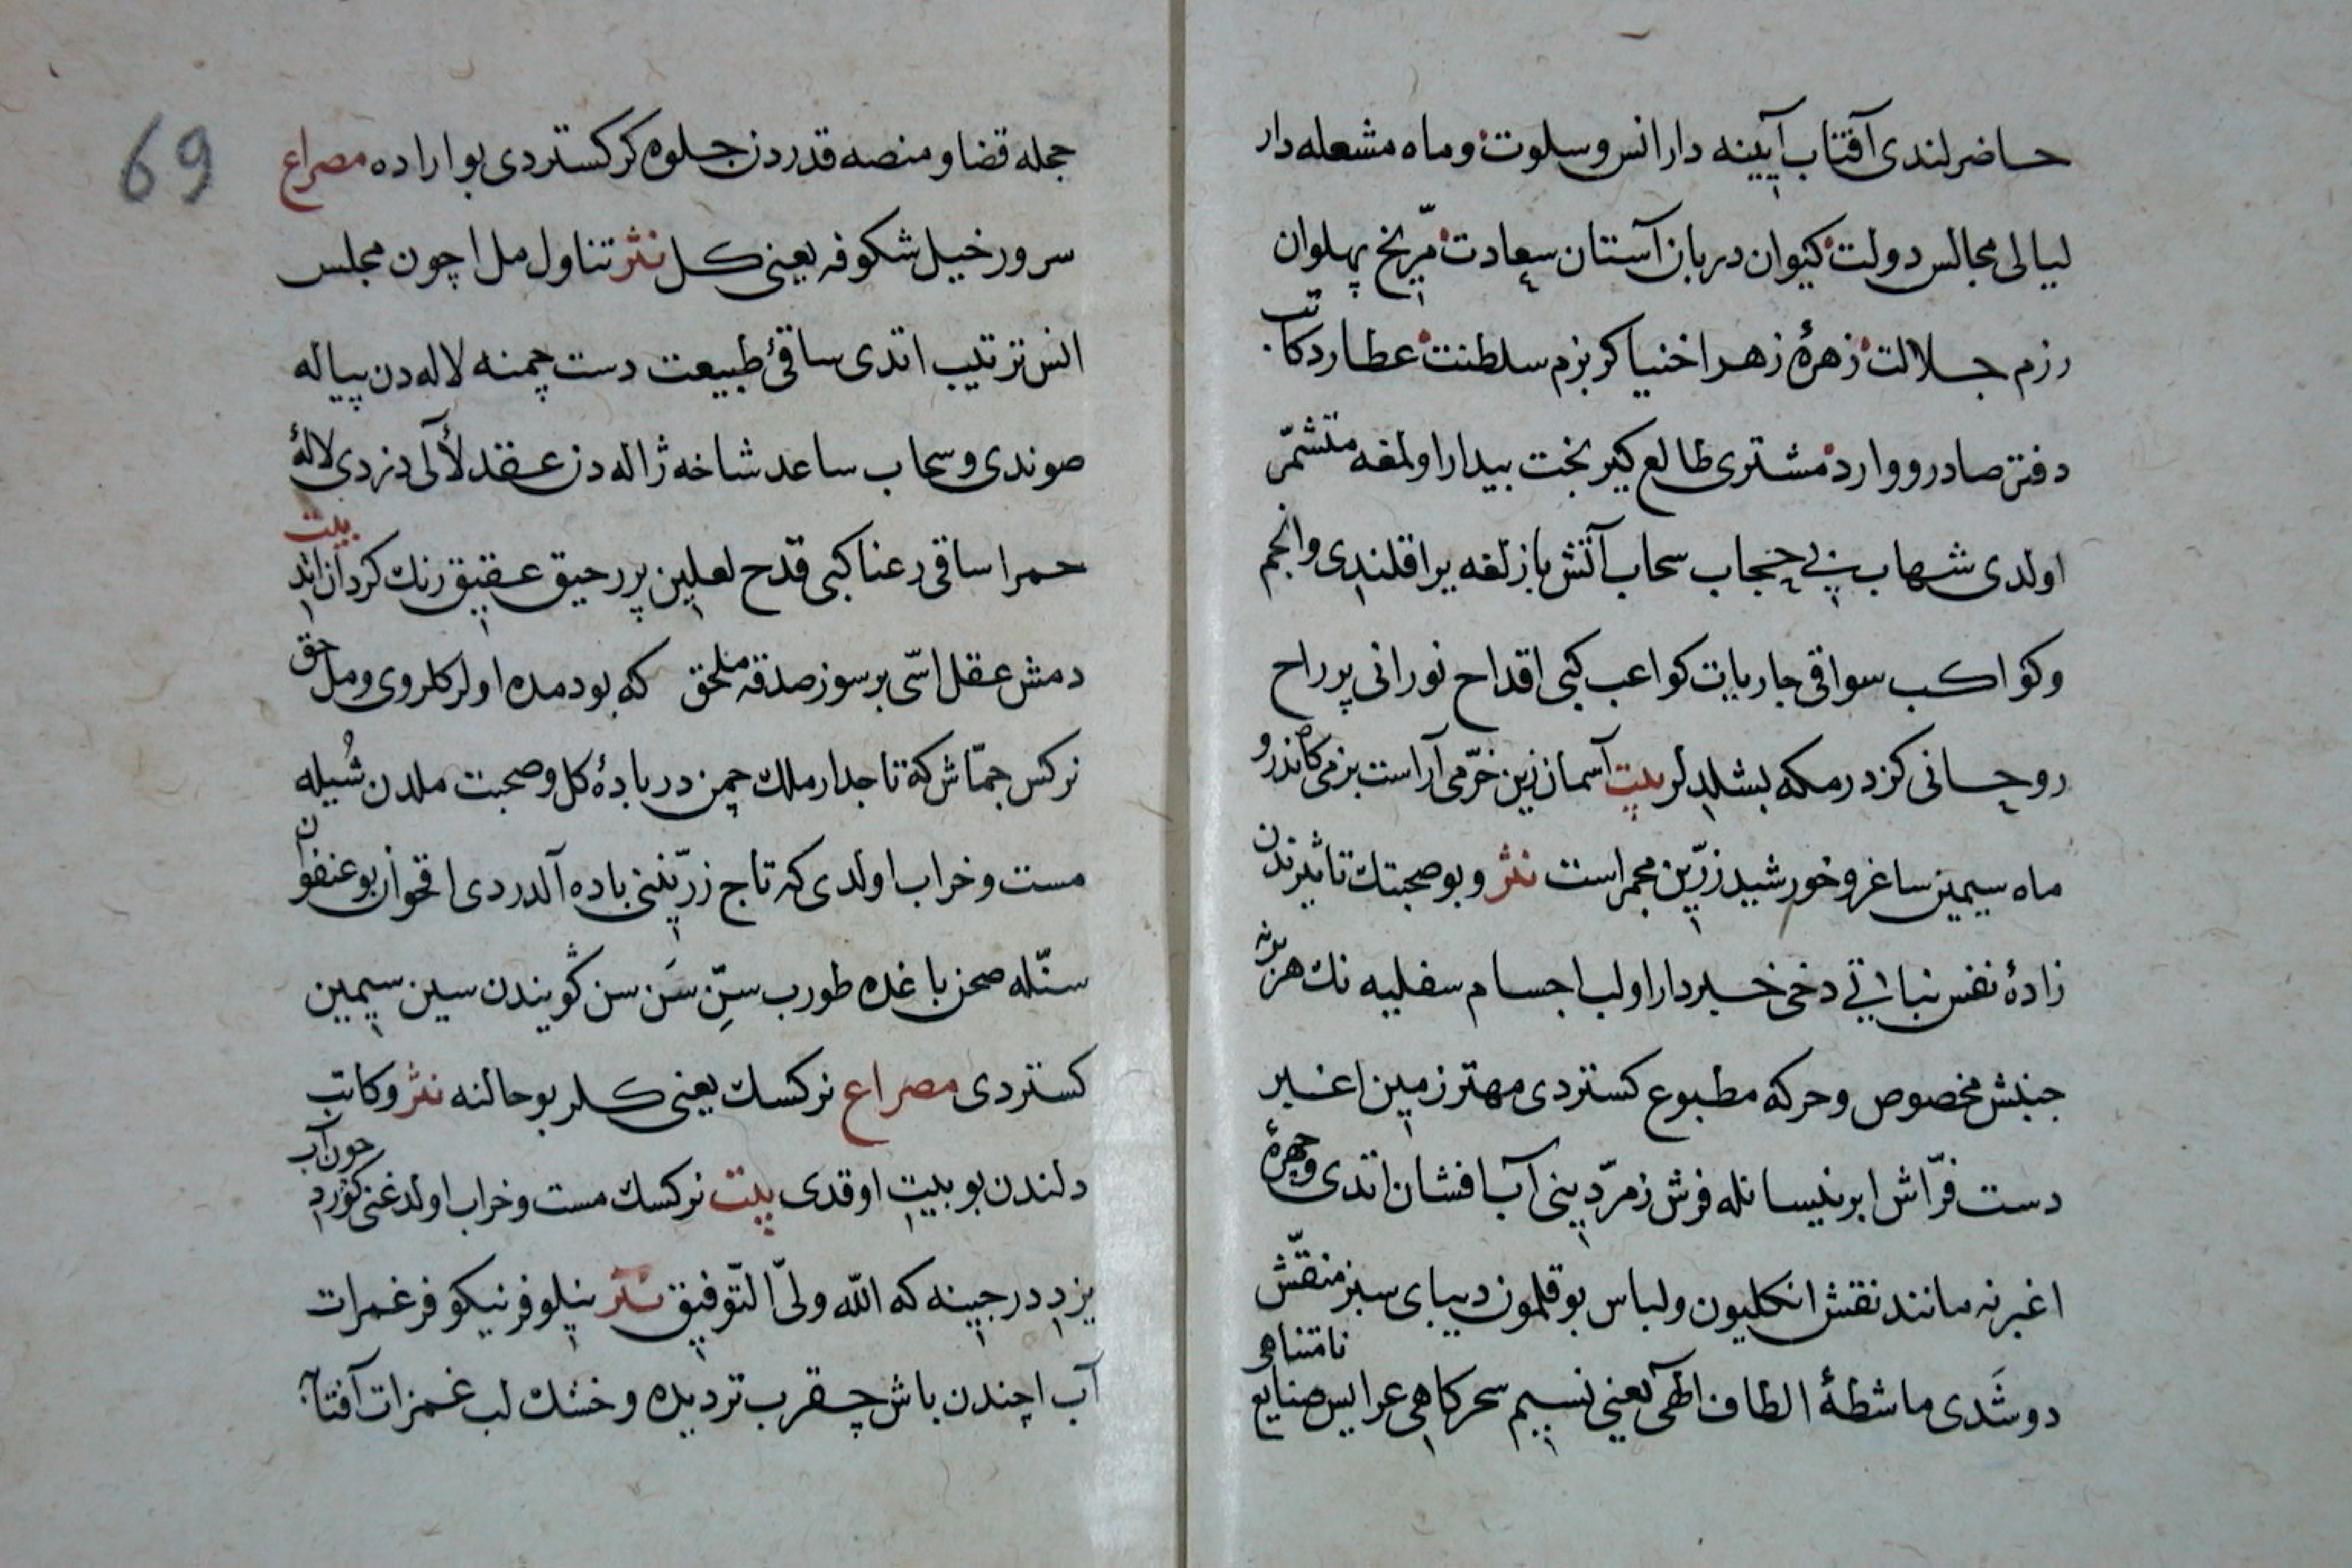 حاضرلندی آفتاب آیینه دار انس و سلوت و ماه مشعله دار
لیالی مجالس دولت کیوان دربان آستان سعادت مرّیخ پهلوان
رزم جلالت زهرهٔ زهرا خنیاکر بزم سلطنت عطارد کاتب
دفتر صادر و وارد مشتری طالع کیر بخت بیدار اولمغه متشمّر
اولدی شهاب بی حجاب سحاب آتش بازلغه یراقلندی و انجم
و کواکب سواقی جاریات کواعب کبی اقداح نورانی پر راح
روحانی کزدرمکه بشلدلر بیت آسمان زین خرّمی آراست بزمی کاندرو
ماه سیمین ساغر و خورشید زرّین مجمراست نثر و بو صحبتك تاثیرندن
زادهٔ نفس نباتی دخی خبردار اولب اجسام سفلیه نك هر برنه
جنبش مخصوص و حرکه مطبوع کستردی مهتر زمین اغبر
دست فرّاش ابر نیسانله فرش زمرّدینی آب افشان اتدی و چهرهٔ
اغبرنه مانند نقش انکلیون و لباس بوقلمون دیبای سبز منقّش
دوشَدی ماشطهٔ الطاف الهی یعنی نسیم سحرکاهی عرایس صنایع نامتناهی
69
حجله قضا و منصه قدردن جلوه کر کستردی بو اراده مصراع
سرور خیل شکوفه یعنی کل نثر تناول مل اچون مجلس
انس ترتیب اتدی ساقیٔ طبیعت دست چمنه لاله دن پیاله
صوندی و سحاب ساعد شاخه ژاله دن عقد لألی دزدی لالهٔ
حمرا ساقی رعنا کبی قدح لعلین پر رحیق عقیق رنك کردان اتد بیت
دمش عقل اسّی بر سوز صدقه ملحق که بو دمده اولر کلروی و مل حق
نرکس جمّاش که تاجدار ملك چمن در بادهٔ کل و صحبت ملدن شُیله
مست و خراب اولدی که تاج زرّیننی باده آلدردی اقحوان بو عنفوان
سنّله صحن باغده طورب سنّ سَن سن کویندن سین سیمین
کستردی مصراع نرکسك یعنی کلر بو حالنه نثر و کاتب
دلندن بو بیت اوقدی بیت نرکسك مست و خراب اولدغنی کورد چون آب
یزد در جبینه که الله ولیّ التّوفیق نثر نیلوفر نیکوفر غمرات
آب اچندن باش چقرب تر دیده و خشك لب غمزات آفتابه